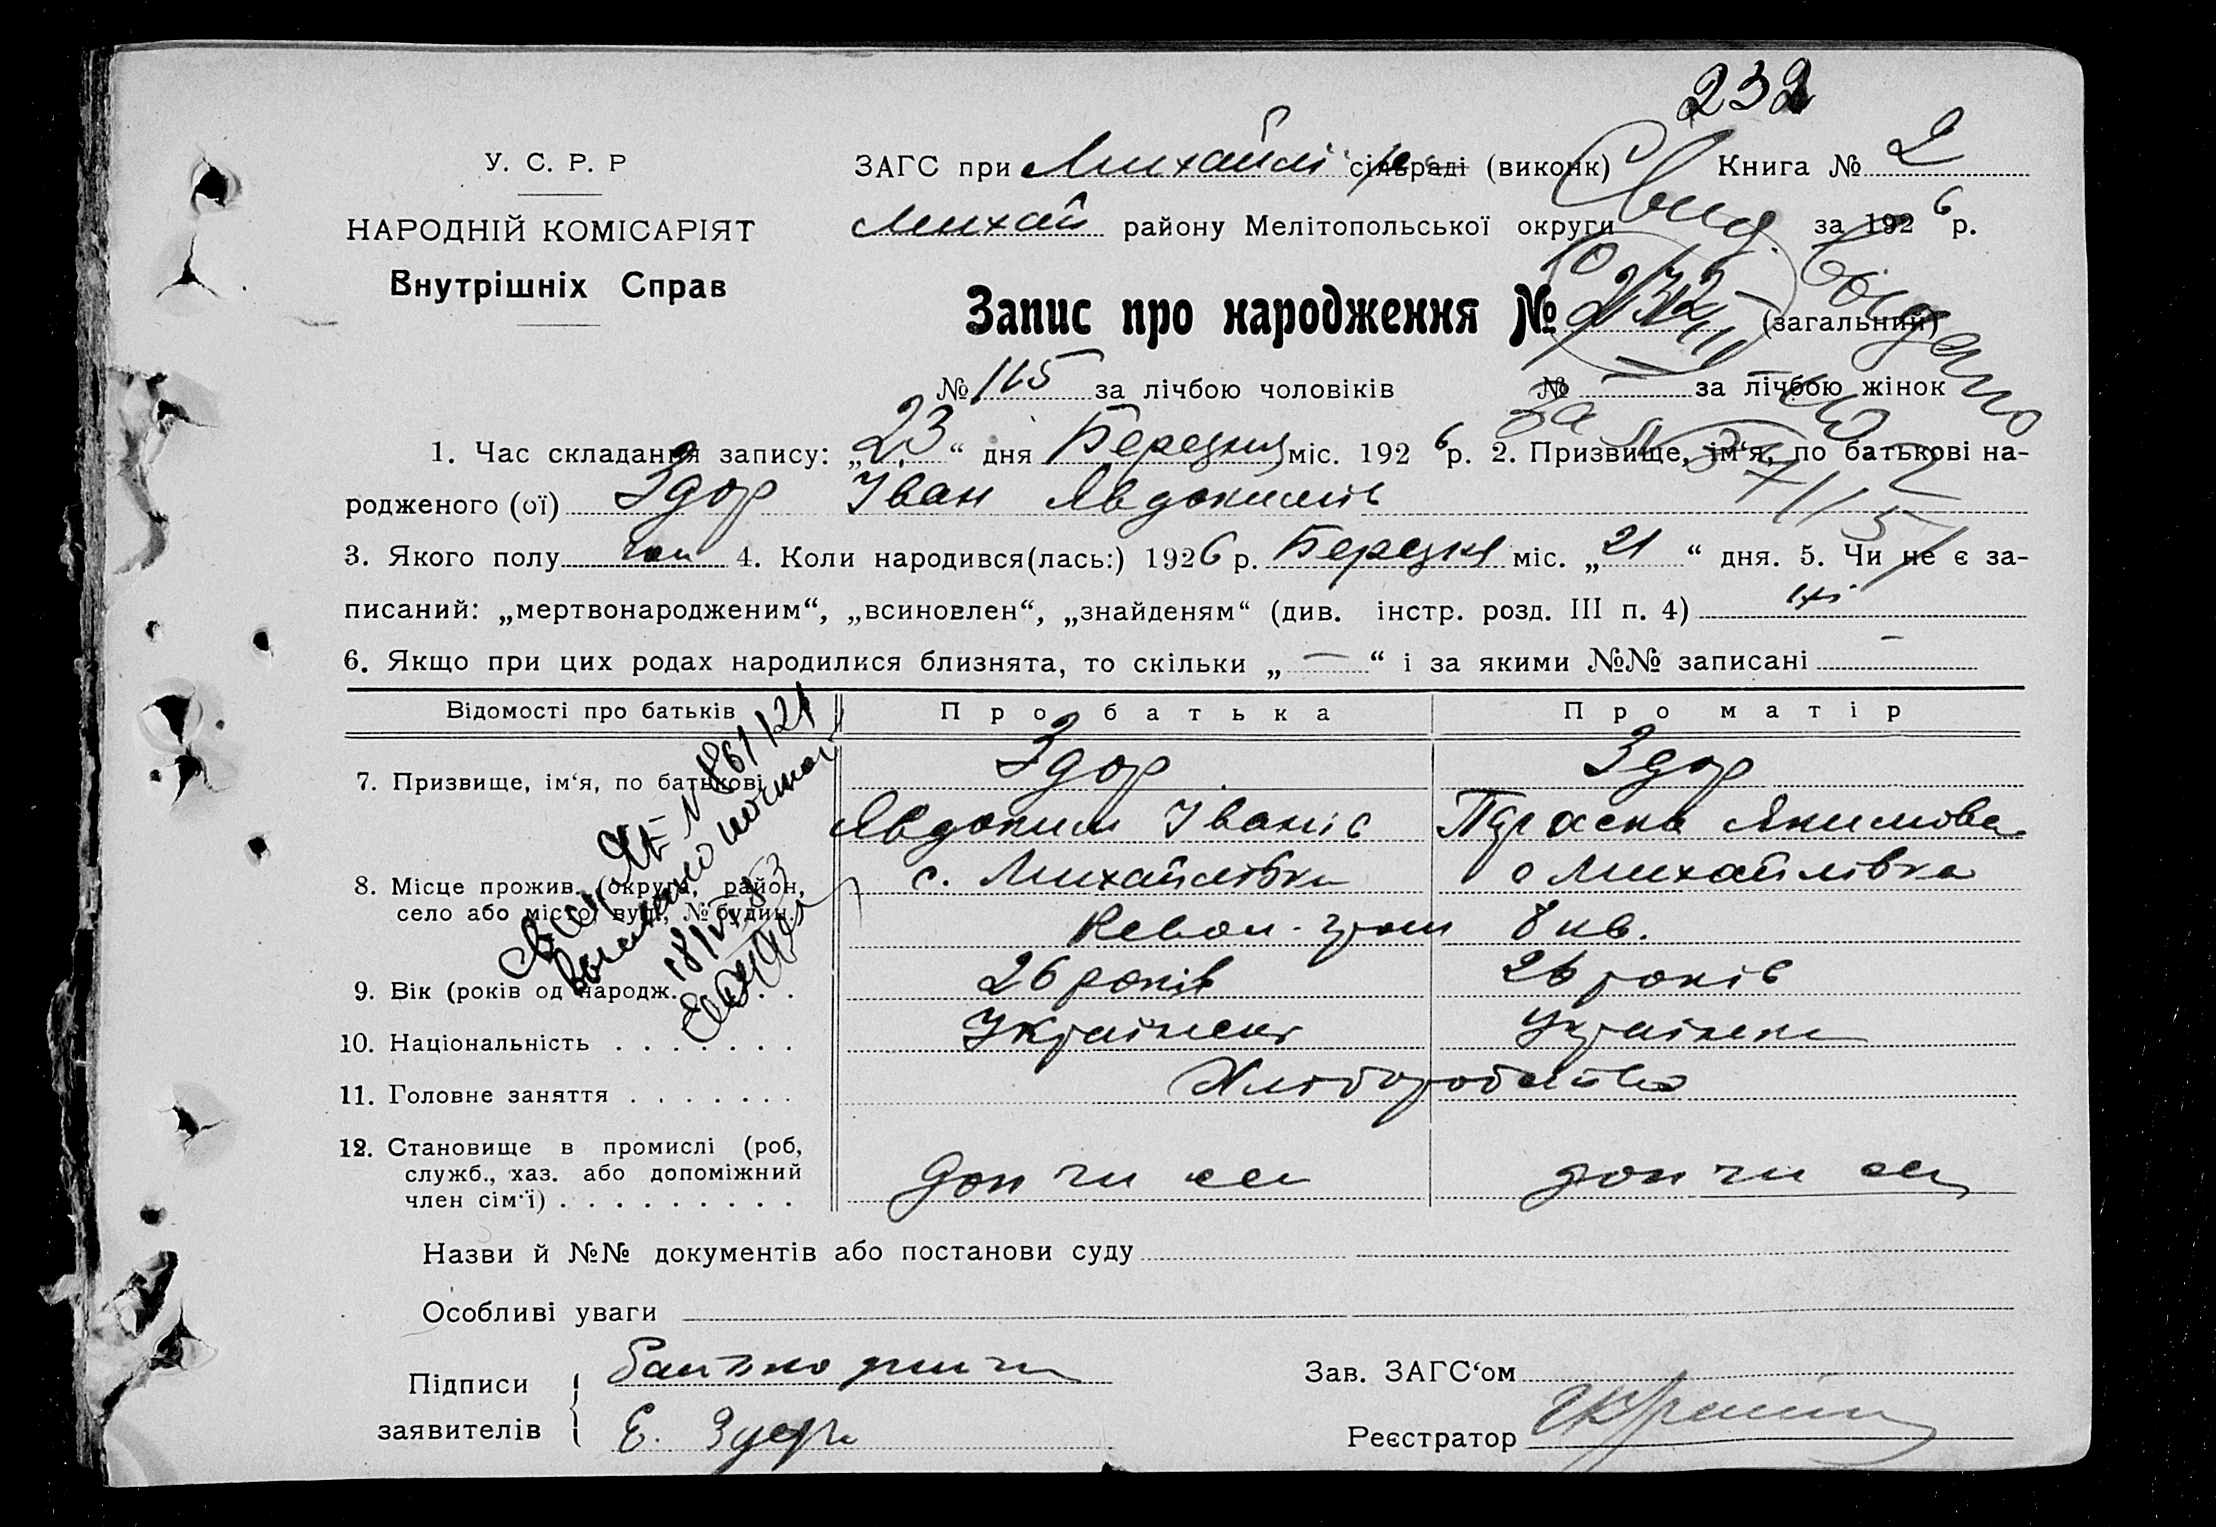 232
У. С. Р. Р
НАРОДНІЙ КОМІСАРІЯТ
Внутрішніх Справ
ЗАГС при Михайлі сільраді (виконк) Книга № 2
Михай району Мелітопольської округи за 1926 р.
Запис про народження № 232 (загальний)
№ 115 за лічбою чоловіків № — за лічбою жінок
1. Час складання запису: „23“ дня Березня міс. 1926 р. 2. Призвище, ім‘я, по батькові на-
родженого (ої) Здор Іван Явдокимів
3. Якого полу чол 4. Коли народився(лась:) 1926 р. Березня міс. „21“ дня. 5. Чи не є за-
писаний: „мертвонародженим“, „всиновлен“, „знайденям“ (див. інстр. розд. III п. 4)
6. Якщо при цих родах народилися близнята, то скільки „—“ і за якими №№ записані —
Відомості про батьків Про батька Про матір
7. Призвище, ім‘я, по батькові Здор Здор
Явдоким Іванів Параска Якимова
8. Місце прожив. (округа, район, с. Михайлівка с Михайлівка
село або місто, вул., № будин.) Револ. 8 кв.
9. Вік (років од народж. . . . 26 років 26 років
10. Національність . . . . . . . Українець Українка
11. Головне заняття . . . . . . . Хліборобство
12. Становище в промислі (роб,
служб., хаз. або допоміжний
член сім‘ї) . . . . . . . . . доп чл сем доп чл сем
Назви й №№ документів або постанови суду
Особливі уваги
Підписи
заявителів
Е. Здор
Зав. ЗАГС‘ом
Реєстратор